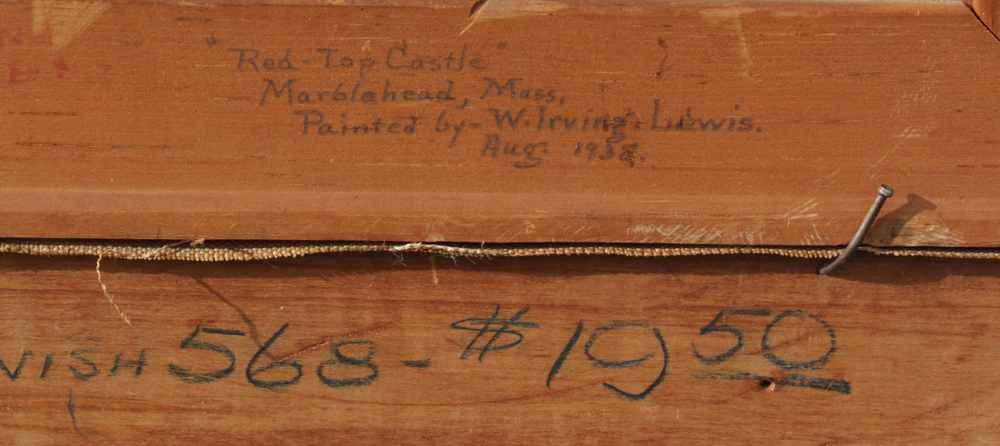 "Red-Top Castle"
Marblehead, Mass.
Painted by - W. Irving Lewis.
Aug. 1938.
VISH 568 - $19 50